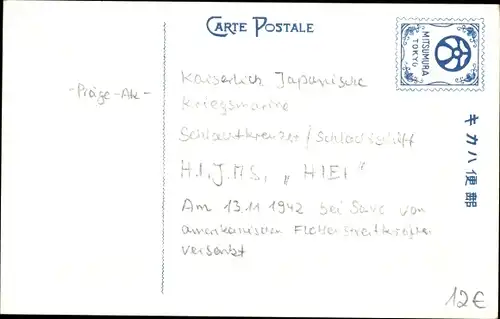 CARTE POSTALE
MITSUMURA
TOKYO
キカハ便郵
-Präge-Ak-
Kaiserlich Japanische
Kriegsmarine
Schlachtkreuzer / Schlachtschiff
H.I.J.M.S. „HIEI"
Am 13.11 1942 bei Savo von
amerikanischen Flottenstreitkräften
versenkt
12€